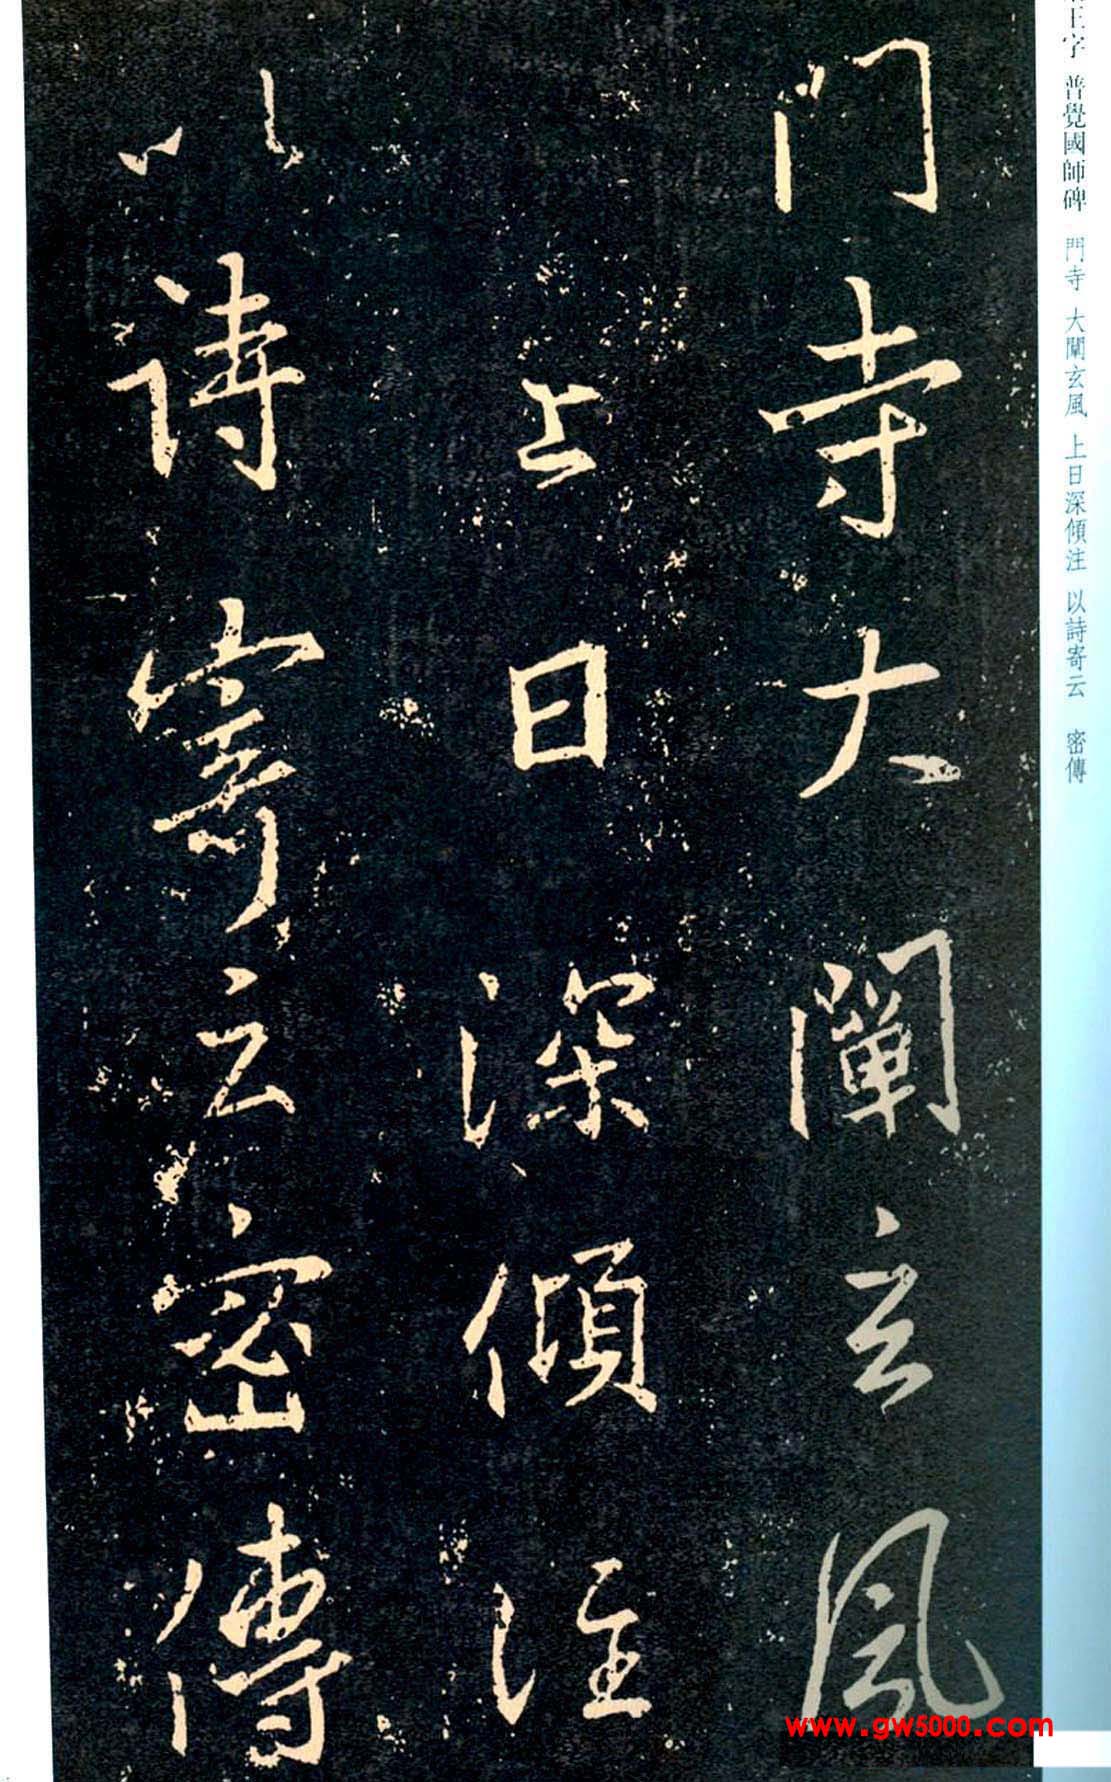 門寺大闡玄風
上日深傾注
以詩寄云密傳
王字 普覺國師碑 門寺 大闡玄風 上日深傾注 以詩寄云 密傳
www.gw5000.com